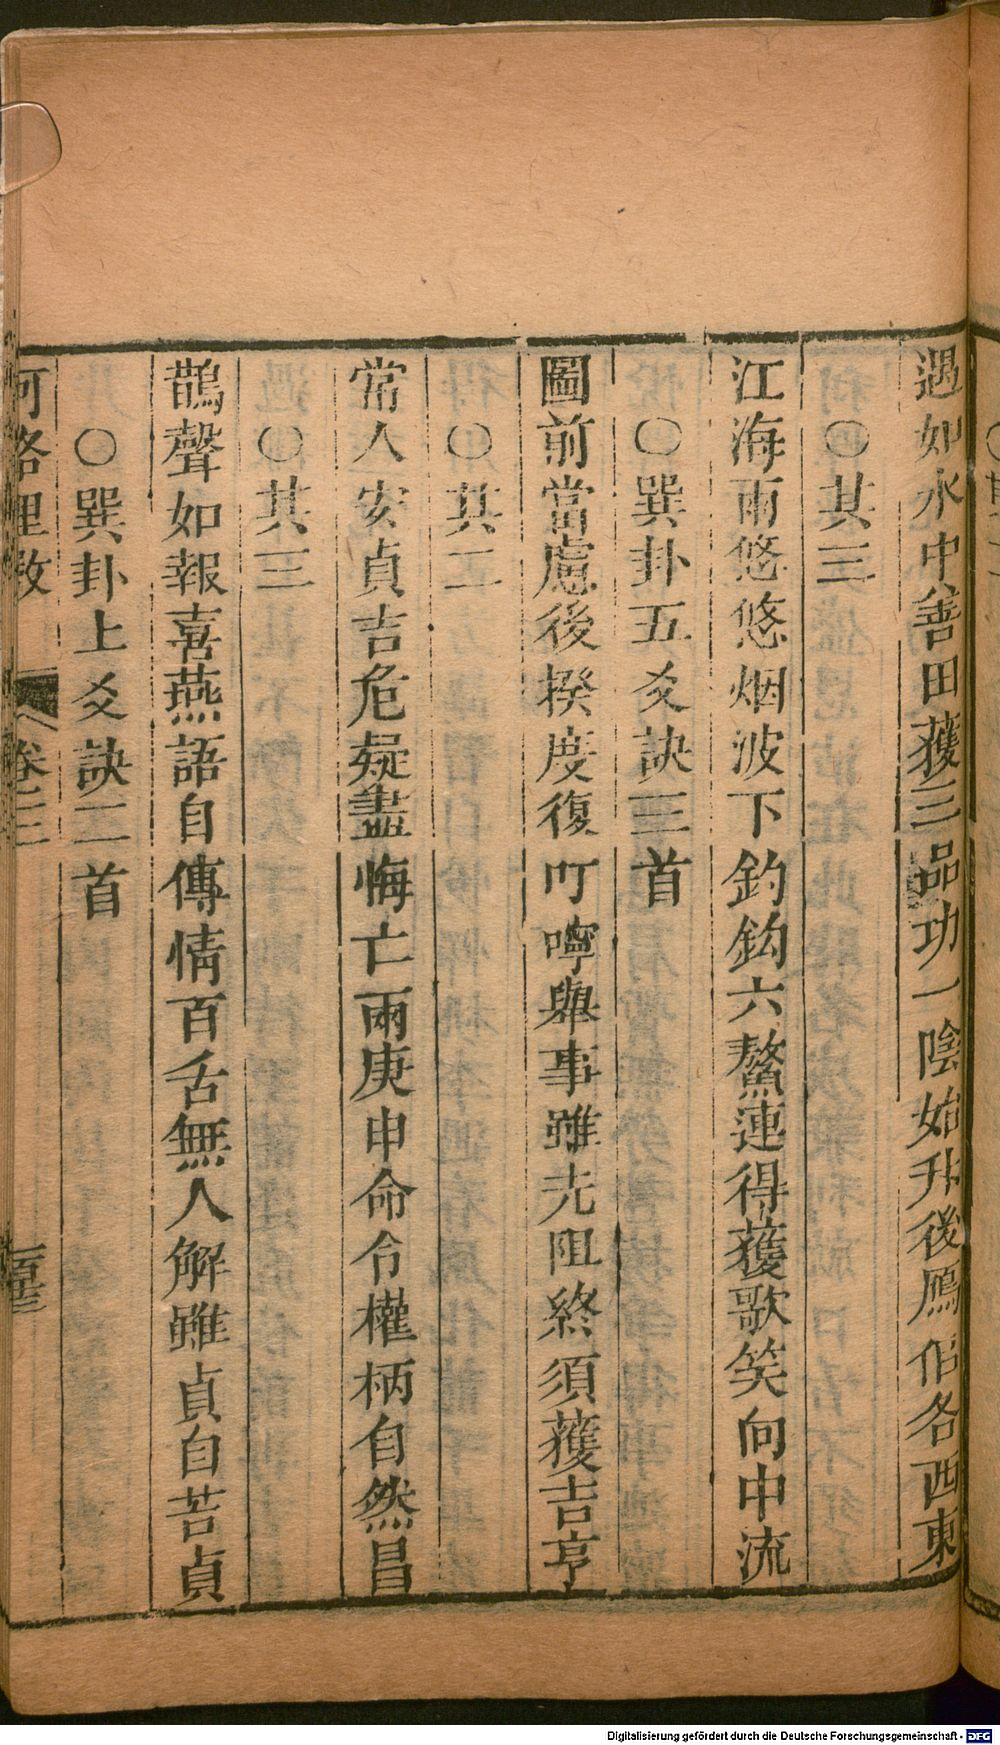 遇如水中善田獲三品功一陰始升後鴈伯各西東
〇其三
江海雨悠悠烟波下釣鈎六鰲連得獲歌笑向中流
〇巽卦五爻訣三首
圖前當慮後揆度復叮嚀舉事雖先阻終須獲吉亨
〇其二
常人安貞吉危疑盡悔亡兩庚申命令權柄自然昌
〇其三
鵲聲如報喜燕語自傳情百舌無人解雖貞自苦貞
〇巽卦上爻訣二首
河洛理數 卷三
Digitalisierung gefördert durch die Deutsche Forschungsgemeinschaft - DFG